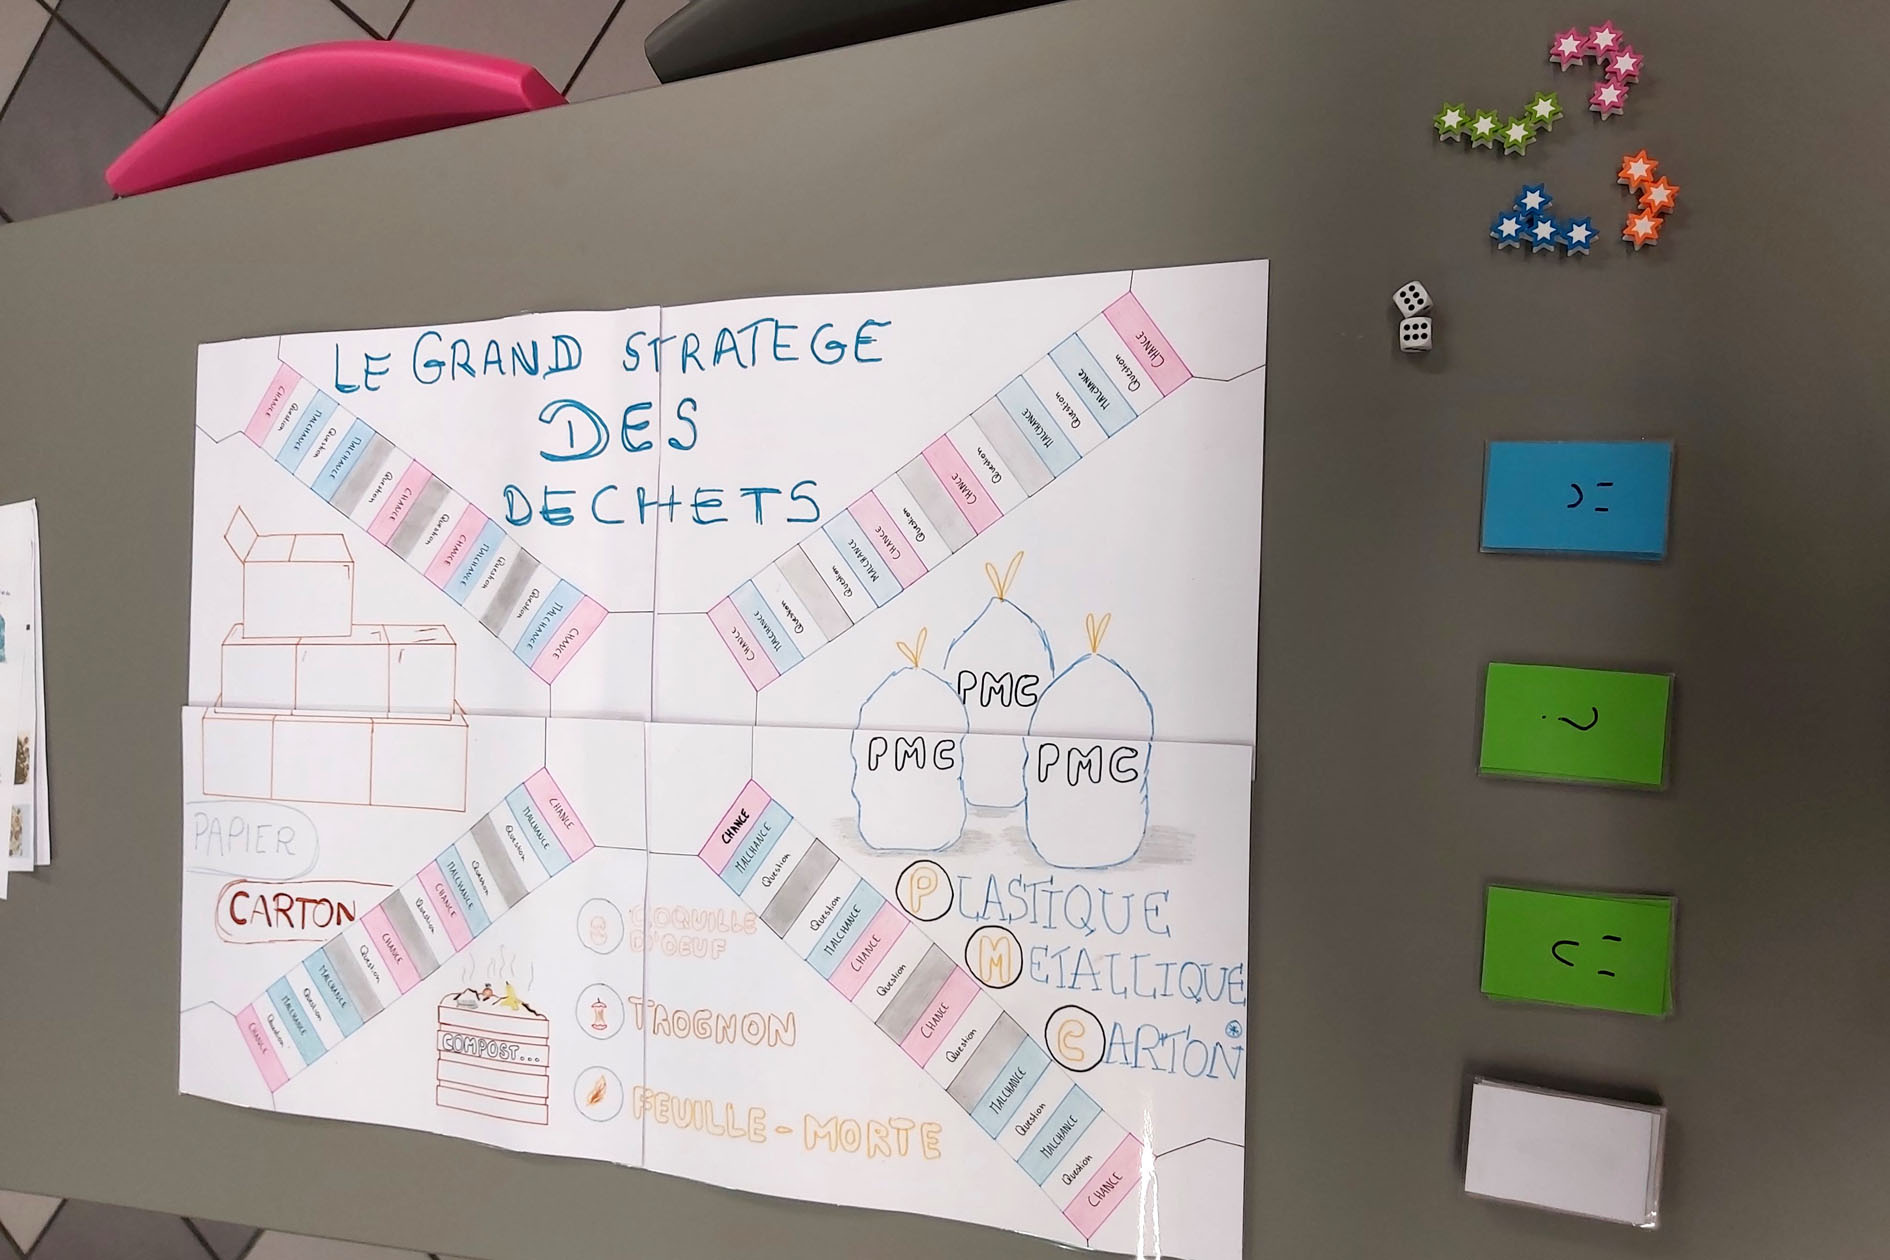 LE GRAND STRATEGE
DES
DECHETS
CHANCE
Question
MALCHANCE
Question
MALCHANCE
Question
CHANCE
Question
CHANCE
MALCHANCE
Question
Question
MALCHANCE
CHANCE
CHANCE
Question
MALCHANCE
Question
MALCHANCE
Question
CHANCE
Question
CHANCE
MALCHANCE
Question
Question
MALCHANCE
CHANCE
PMC
PMC
PMC
PAPIER
CARTON
CHANCE
MALCHANCE
Question
Question
MALCHANCE
CHANCE
Question
CHANCE
Question
MALCHANCE
Question
MALCHANCE
Question
CHANCE
COMPOST...
COQUILLE
D'OEUF
TROGNON
FEUILLE-MORTE
CHANCE
MALCHANCE
Question
Question
MALCHANCE
CHANCE
Question
CHANCE
Question
MALCHANCE
Question
MALCHANCE
Question
CHANCE
PLASTIQUE
METALLIQUE
CARTON*
?